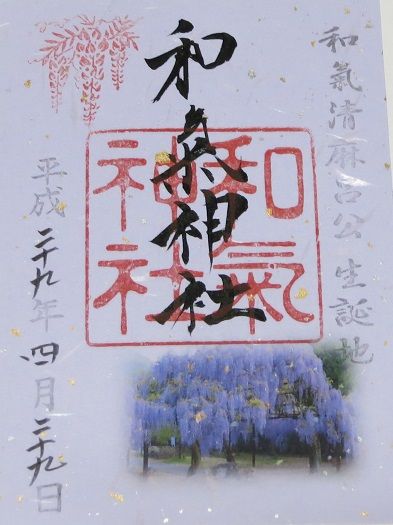 和氣清麻呂公生誕地
和氣神社
和氣神社
平成二十九年四月二十九日